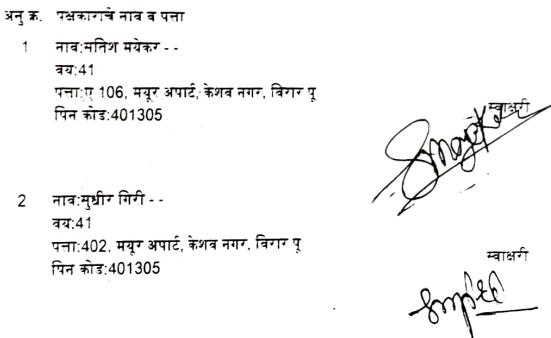 अनु क्र. पक्षकाराचे नाव व पत्ता
1 नाव:मतिश मयेकर - -
वय:41
पत्ता:ए 106, मयूर अपार्ट, केशव नगर, विरार पू
पिन कोड:401305
स्वाक्षरी
2 नाव:सुधीर गिरी - -
वय:41
पत्ता:402, मयूर अपार्ट, केशव नगर, विरार पू
पिन कोड:401305
स्वाक्षरी